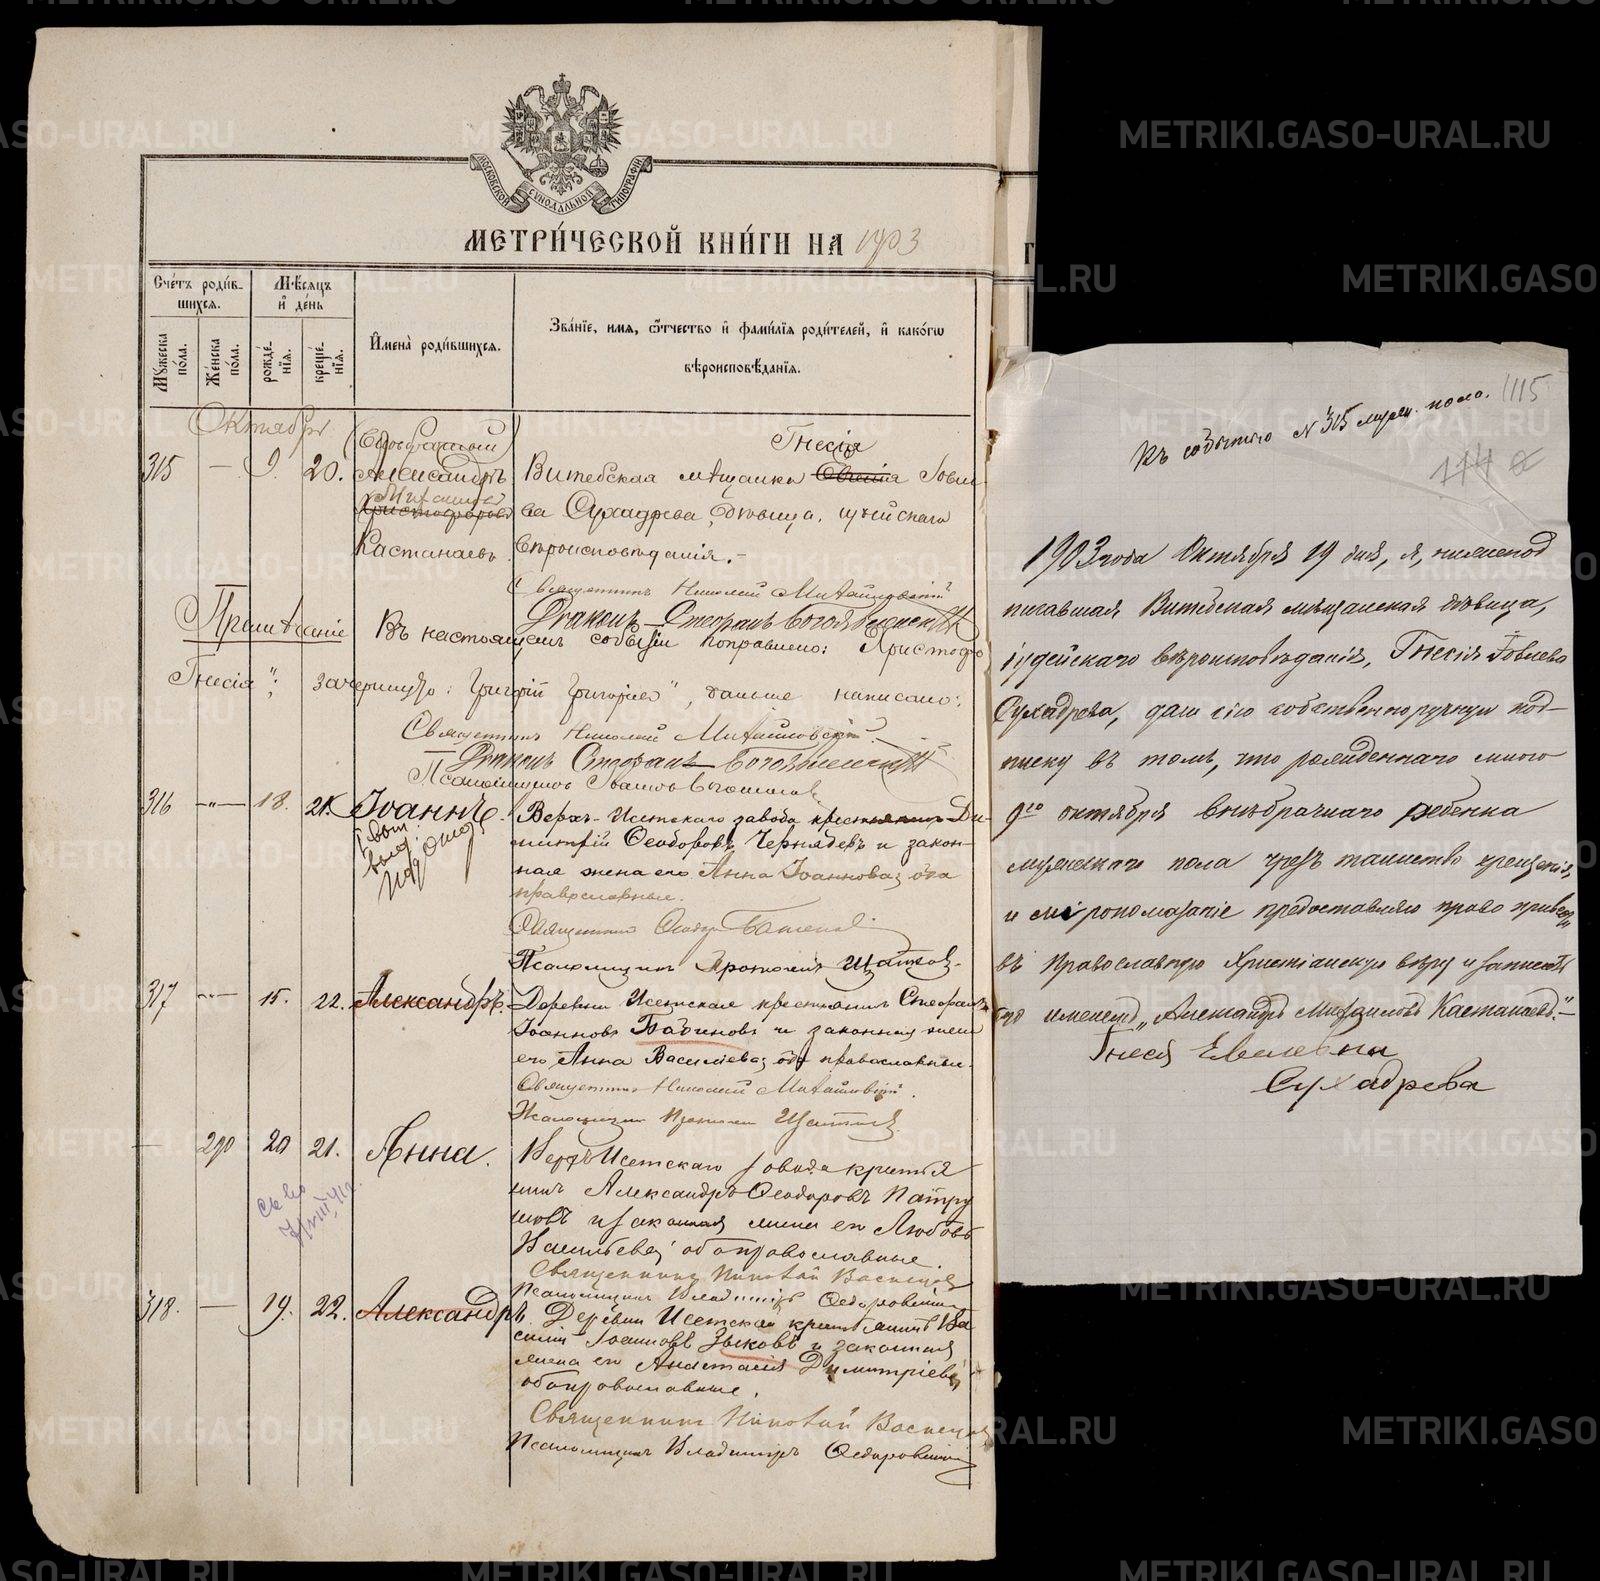 МОСКОВСКОЙ СѴНОДАЛЬНОЙ ТИПОГРАФІИ
МЕТРИ́ЧЕСКОЙ КНИ́ГИ НА 1903
Сче́тъ роди́в-
шихся.
Мѣ́сяцъ
и҆ де́нь
Му́жеска по́ла.
Же́нска по́ла.
рожде́-
нїя.
креще́-
нїя.
И҆мена̀ роди́вшихся.
Зва́нїе, имя, ѻ҆́тчество и҆ фами́лїя роди́телей, и҆ како́гѡ
вѣроисповѣ́данїя.
Октябрь
315 — 9. 20. Александръ
Кастанаевъ.
Гнесія
Витебская мѣщанка Іовле-
ва Сухадрева, дѣвица, іудейскаго
вѣроисповѣданія.-
Священникъ Николай Михайловскій
Діаконъ Стефанъ Богоявленскій
Примѣчаніе Въ настоящемъ событіи поправлено:
Гнесія"; зачеркнуто: дальше написано:
Священникъ Николай Михайловскій.
Діаконъ Стефанъ Богоявленскій
316 -"- 18. 21. Іоаннъ.
Верхъ-Исетскаго завода крестьянинъ Ди-
митрій Ѳеодоровъ Чернядевъ и закон-
ная жена его Анна Іоаннова, оба
православные.
Священникъ
Псаломщикъ
317 -"- 15. 22. Александръ.
Деревни Исетской крестьянинъ Стефанъ
Іоанновъ Бабиновъ и законная жена
его Анна Васильева, оба православные.
Священникъ Николай Михайловскій.
Псаломщикъ
— 290 20 21. Анна.
Верхъ Исетскаго завода крестья
нинъ Александръ Ѳеодоровъ Патру
шовъ и законная жена его Любовь
Васильева, оба православные.
Священникъ Николай Васнецов
Псаломщикъ Владимиръ Ѳедоровскій
318. — 19. 22. Александръ.
Деревни Исетской крестьянинъ Ва
силій Іоанновъ Зыковъ и законная
жена его Анастасія Димитріева,
оба православные.
Священникъ Николай Васнецов
Псаломщикъ Владимиръ Ѳедоровскій
Къ событію № 315 мужск. пола.
115
1903 года Октября 19 дня, я, нижепод
писавшая Витебская мѣщанская дѣвица,
іудейскаго вѣроисповѣданія, Гнесія Іовлева
Сухадрева, даю сію собственноручную под-
писку въ томъ, что рожденнаго мною
9го октября внѣбрачнаго ребенка
мужескаго пола чрезъ таинство крещенія,
и мѵропомазаніе предоставляю право привести
въ Православную Христіанскую вѣру и записать
подъ именемъ „Александръ Михаиловъ Кастанаевъ."-
Гнеся Евелевна
Сухадрева
METRIKI.GASO-URAL.RU